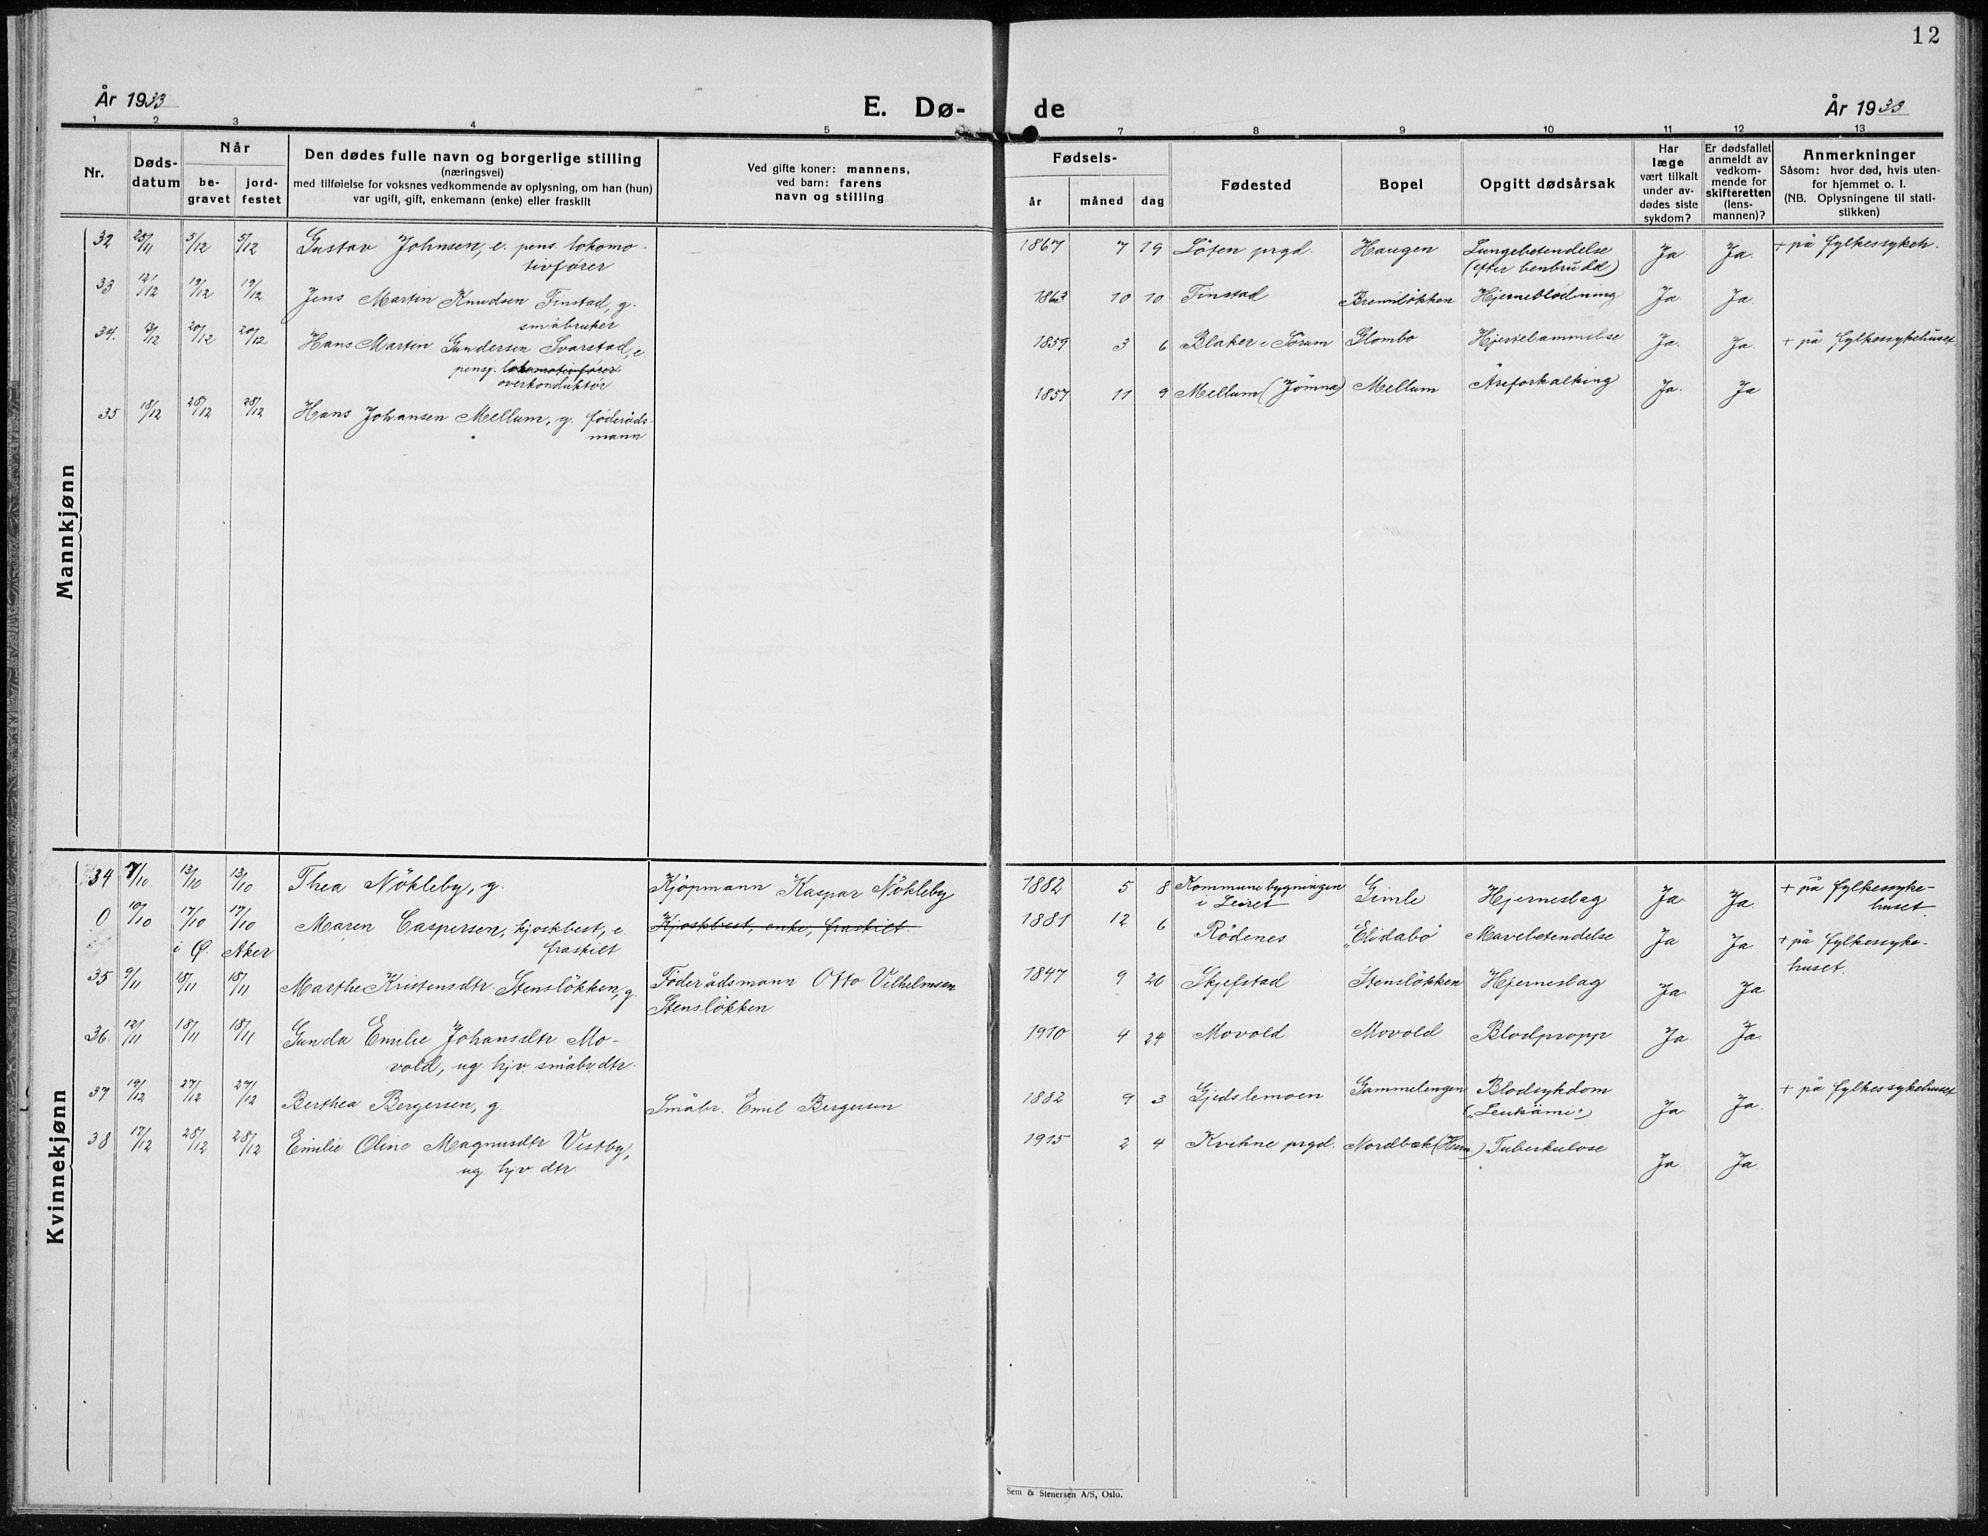 12
År 1933
E. Dø-
de
År 1933
1 2 3 4 5 7 8 9 10 11 12 13
Nr.
Døds-
datum
Når
be-
gravet
jord-
festet
Den dødes fulle navn og borgerlige stilling
(næringsvei)
med tilføielse for voksnes vedkommende av oplysning, om han (hun)
var ugift, gift, enkemann (enke) eller fraskilt
Ved gifte koner: mannens,
ved barn: farens
navn og stilling
Fødsels-
år
måned
dag
Fødested
Bopel
Opgitt dødsårsak
Har
læge
vært tilkalt
under av-
dødes siste
sykdom?
Er dødsfallet
anmeldt av
vedkom-
mende for
skifteretten
(lens-
mannen)?
Anmerkninger
Såsom: hvor død, hvis uten-
for hjemmet o. l.
(NB. Oplysningene til stati-
stikken)
Mannkjønn
32 25/11 5/12 5/12 Gustav Johnsen, e. pens. lokomo- 1867 7 19 Löten prgd. Haugen Lungebetendelse Ja Ja. + på fylkessykeh.
tivfører (efter benbrudd)
33 12/12 19/12 19/12 Jens Martin Knudsen Finstad, g. 1863 10 10 Finstad Bremiløkken Hjerneblödning Ja Ja.
småbruker
34. 13/12 20/12 20/12 Hans Martin Gundersen Svarstad, e. 1859 3 6 Blaker i Sörum Glombo Hjertelammelse Ja. Ja. + på fylkessykehuset
pensj. lokomotivfører
overkonduktør
35 18/12 28/12 28/12 Hans Johansen Mellum, g. föderåds- 1857 11 9 Mellum (Jömna) Mellum Åreforkalking Ja. Ja
mann
Kvinnekjønn
34 7/10 13/10 13/10 Thea Nökleby, g. Kjöpmann Kaspar Nökleby 1882 5 8 Kommunebygningen Gimle Hjerneslag Ja. Ja. + på fylkessyke-
i Leiret huset.
0 10/10 17/10 17/10 Maren Caspersen, kjoskbest, e Kjoskbest, enke, fraskilt 1881 12 6 Rödenes "Elidabö" Mavebetendelse Ja Ja + på fylkessyke-
i Ø. Aker fraskilt huset.
35 9/11 18/11 18/11 Marthe Kristensdtr Stensløkken, g. Föderådsmann Otto Vilhelmsen 1847 9 20 Skjefstad Stensløkken Hjerneslag Ja. Ja
Stensløkken
36. 12/11 18/11 18/11 Gunda Emilie Johansdtr Mo- 1910 4 24 Movold Movold Blodpropp Ja Ja.
vold, ug. hjv. småbr.dtr.
37 19/12 27/12 27/12 Berthea Bergersen, g. Småbr. Emil Bergersen 1882 9 3 Gjedslemoen Gammelengen Blodsykdom Ja Ja. + på fylkessykehuset
("Leukämi")
38 17/12 28/12 28/12 Emilie Oline Magnusdtr Vestby, 1915 2 4 Kvikne prgd. Nordbæk (Hern) Tuberkulose Ja Ja.
ug. hjv. dtr.
Sem & Stenersen A/S, Oslo.